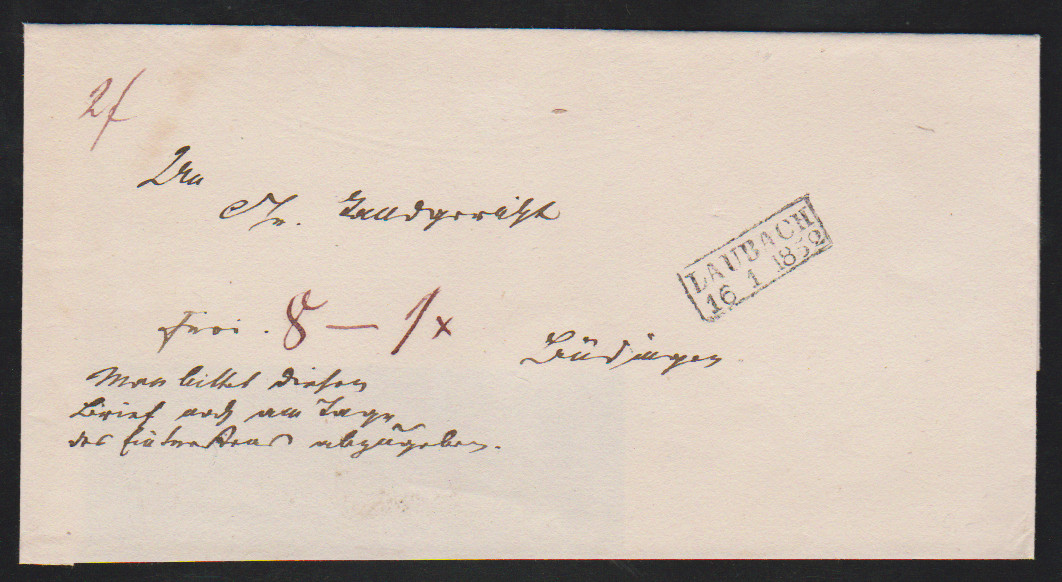 2f
An
Gr. Landgericht
LAUBACH
16 1 1852
Frei. 8 — 1 x
Büdingen
Man bittet diesen
Brief noch am Tage
des Eintreffens abzugeben.